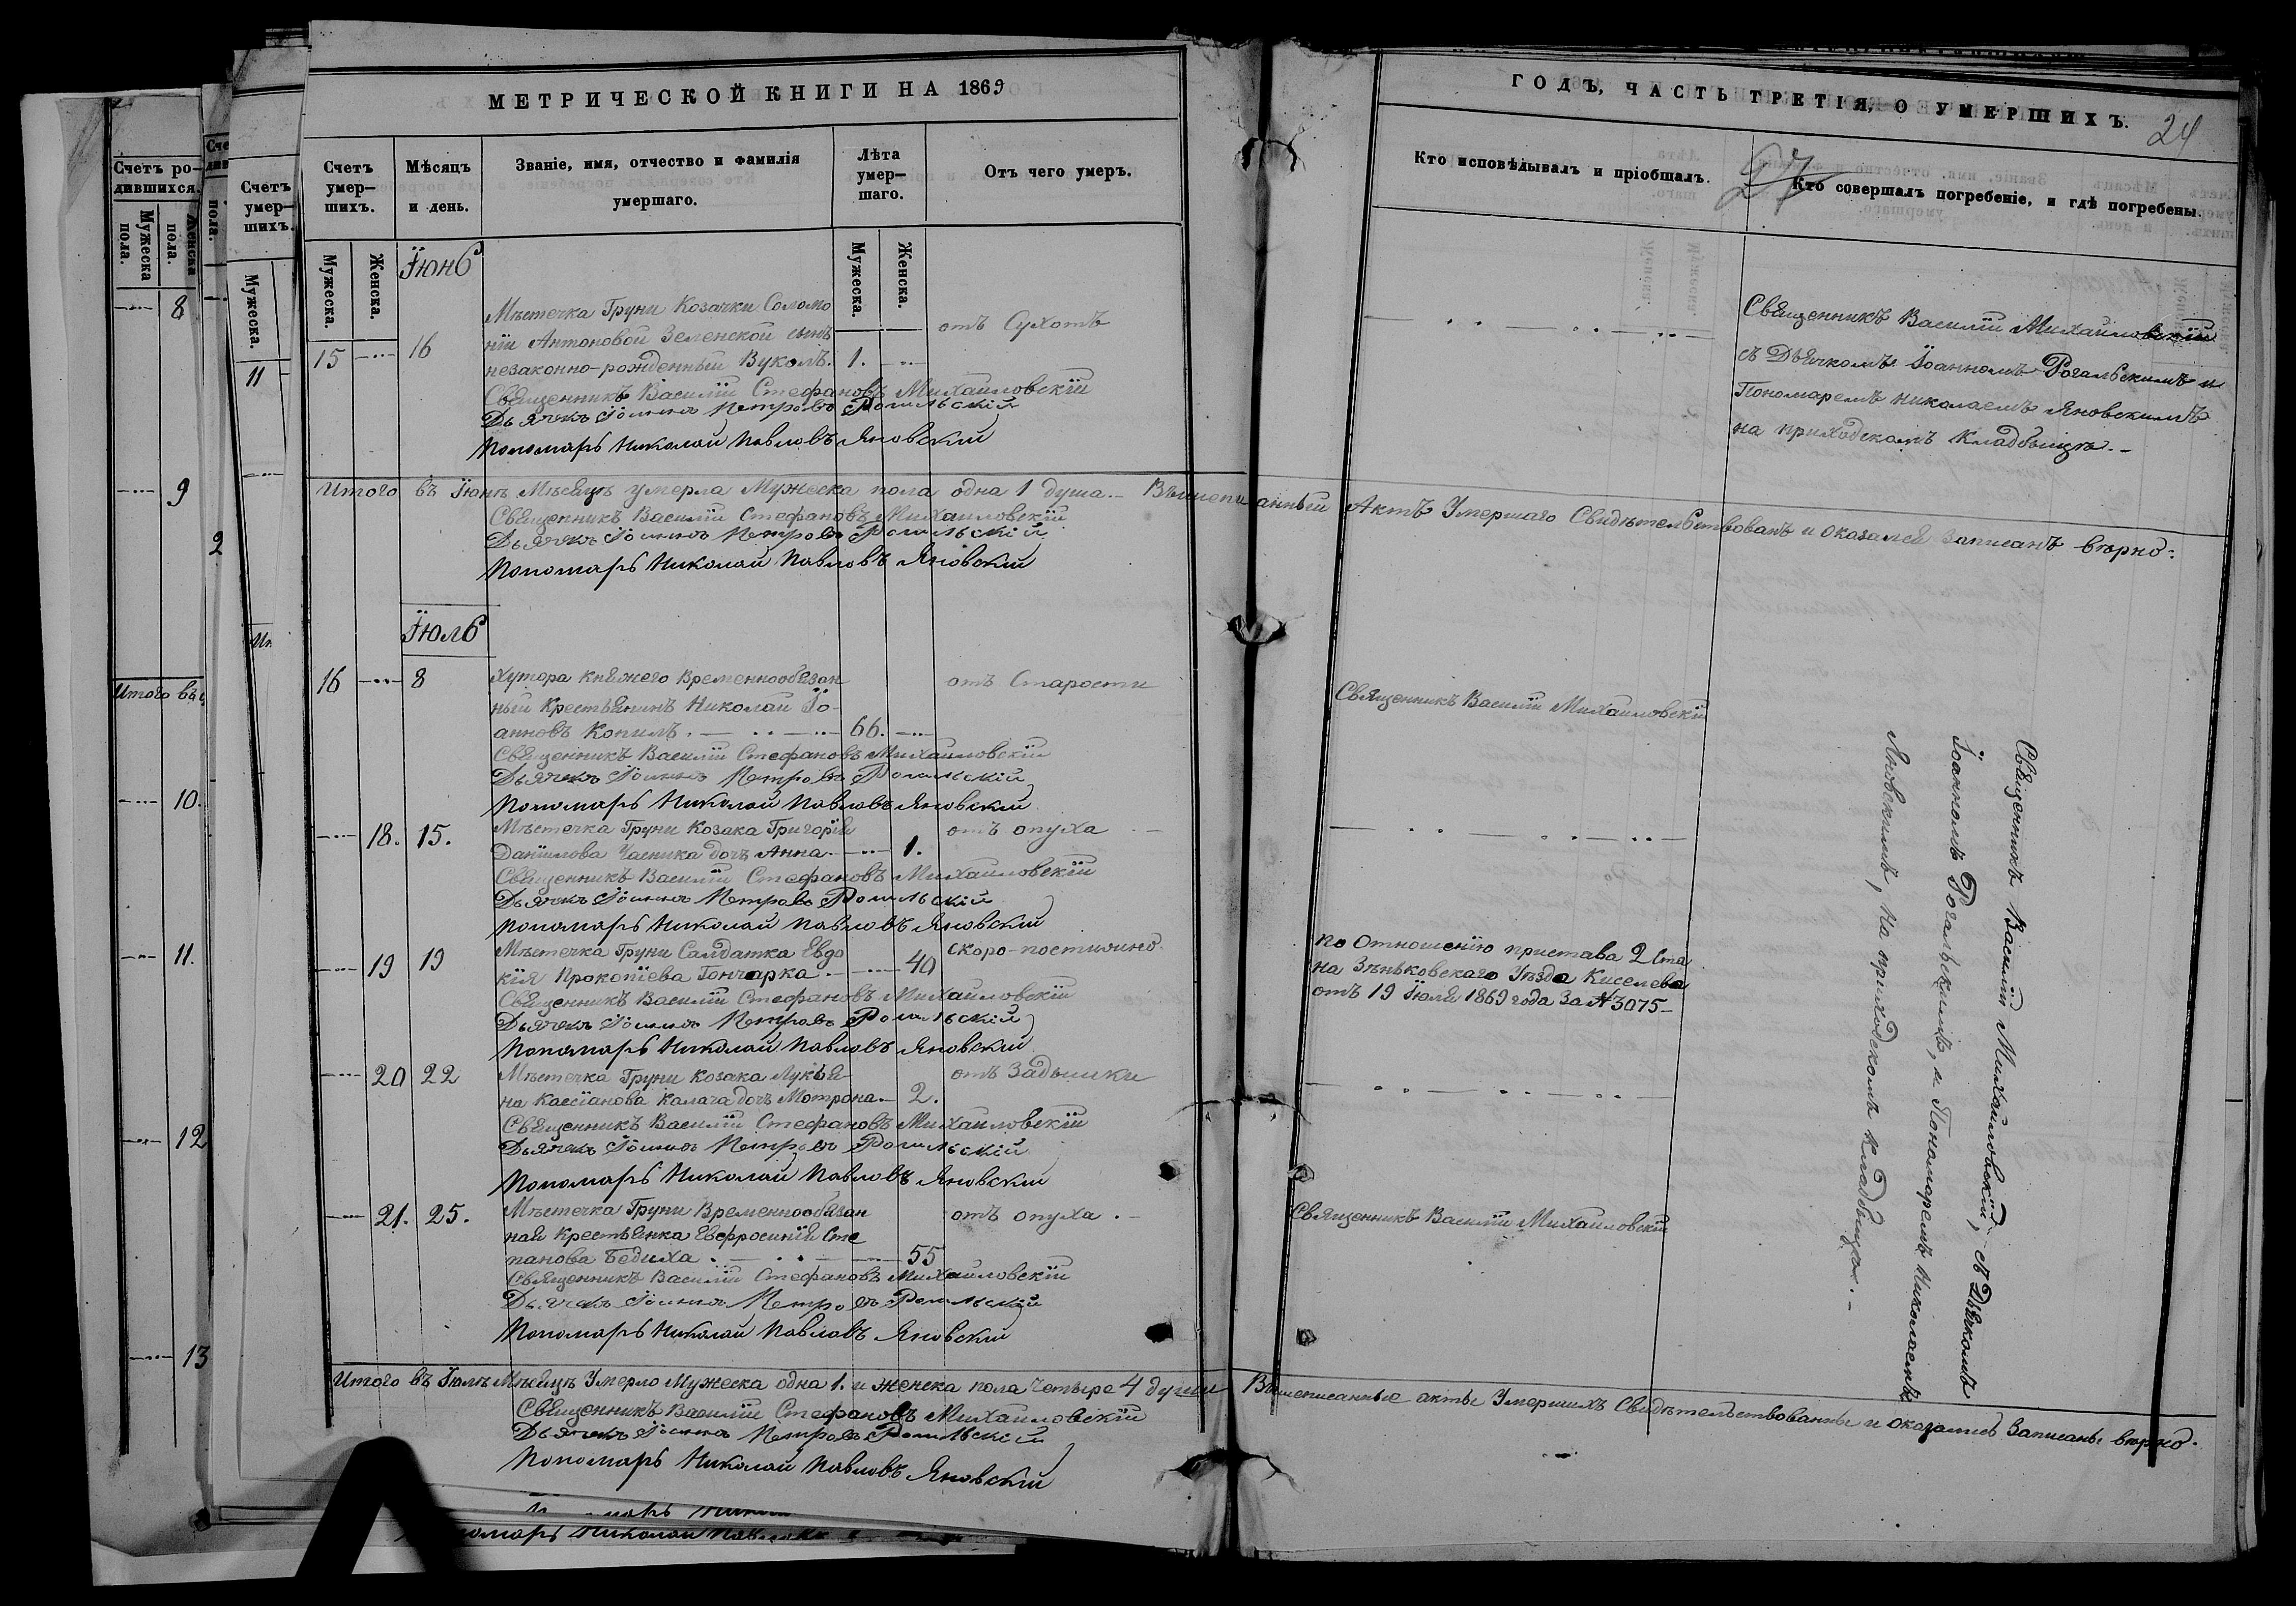 МЕТРИЧЕСКОЙ КНИГИ НА 1869
Счетъ умер–шихъ.
Мѣсяцъ и день.
Званіе, имя, отчество и фамилія умершаго.
Лѣта умер–шаго.
Отъ чего умеръ.
Мужеска.
Женска.
Мужеска.
Женска.
Іюнь
15 16
Мѣстечка Груни Козачки Соломо
ніи Антоновой Зеленской сынъ
незаконно-рожденный Вуколъ. 1.
отъ Сухотъ
Священникъ Василій Стефановъ Михаиловскій
Дьячекъ Іоаннъ Петровъ Рогальскій
Пономарь Николай Павловъ Яновскій
Итого въ Іюнѣ Мѣсяцѣ умерла Мужеска пола одна 1 душа.–
Священникъ Василій Стефановъ Михаиловскій
Дьячекъ Іоаннъ Петровъ Рогальскій
Пономарь Николай Павловъ Яновскій
Іюль
16 8
Хутора Княжего Временнообязан
ный Крестьянинъ Николай Іо-
анновъ Копилъ. 66.
отъ Старости
Священникъ Василій Стефановъ Михаиловскій
Дьячекъ Іоаннъ Петровъ Рогальскій
Пономарь Николай Павловъ Яновскій
18. 15.
Мѣстечка Груни Козака Григорія
Даніилова Часника дочь Анна. 1.
отъ опуха
Священникъ Василій Стефановъ Михаиловскій
Дьячекъ Іоаннъ Петровъ Рогальскій
Пономарь Николай Павловъ Яновскій
19 19
Мѣстечка Груни Салдатка Евдо
кія Прокопіева Гончарка. 40
скоро-постижно
Священникъ Василій Стефановъ Михаиловскій
Дьячекъ Іоаннъ Петровъ Рогальскій
Пономарь Николай Павловъ Яновскій
20 22
Мѣстечка Груни Козака Лукья-
на Кассіанова Калача дочь Мотрона. 2.
отъ Задышки
Священникъ Василій Стефановъ Михаиловскій
Дьячекъ Іоаннъ Петровъ Рогальскій
Пономарь Николай Павловъ Яновскій
21. 25.
Мѣстечка Груни Временнообязан
ная Крестьянка Евфросинія Сте
панова Бедиха 55
отъ опуха.
Священникъ Василій Стефановъ Михаиловскій
Дьячекъ Іоаннъ Петровъ Рогальскій
Пономарь Николай Павловъ Яновскій
Итого въ Іюлѣ Мѣсяцѣ Умерло Мужеска одна 1. и женска пола четыре 4 души
Священникъ Василій Стефановъ Михаиловскій
Дьячекъ Іоаннъ Петровъ Рогальскій
Пономарь Николай Павловъ Яновскій
ГОДЪ, ЧАСТЬ ТРЕТІЯ, О УМЕРШИХЪ.
24
Кто исповѣдывалъ и пріобщалъ.
Кто совершалъ погребеніе, и гдѣ погребены.
Священникъ Василій Михаиловскій
съ Дьячкомъ Іоанномъ Рогальскимъ и
Пономаремъ Николаемъ Яновскимъ
на приходскомъ Кладбищѣ.–
Вышеписанный Актъ Умершаго Свидѣтельствованъ и оказался записанъ вѣрно:
Священникъ Василій Михаиловскій
по Отношенію пристава 2 Ста
на Зѣньковскаго Уѣзда Киселева
отъ 19 Іюля 1869 года За № 3075–
Священникъ Василій Михаиловскій
Священникъ Василій Михайловскій, съ Дьячкомъ
Іоанномъ Рогальскимъ, и Пономаремъ Николаемъ
Яновскимъ, на приходскомъ кладбищѣ.–
Вышеписанные акты Умершихъ Свидѣтельствованы и оказались Записаны вѣрно.
Счетъ ро–дившихся.
Мужеска пола.
Женска пола.
8
9
Итого въ
10.
11.
12
13
Счетъ умер–шихъ.
Мужеска.
11
Пономарь Николай Павловъ